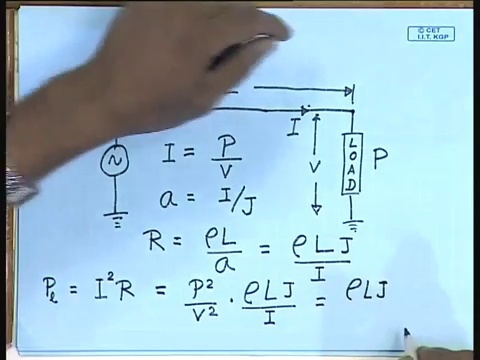 © CET
I.I.T. KGP
I
V
LOAD
P
~
I = P/V
a = I/J
R = ρL/a = ρLJ/I
Pₗ = I²R = P²/V² · ρLJ/I = ρLJ